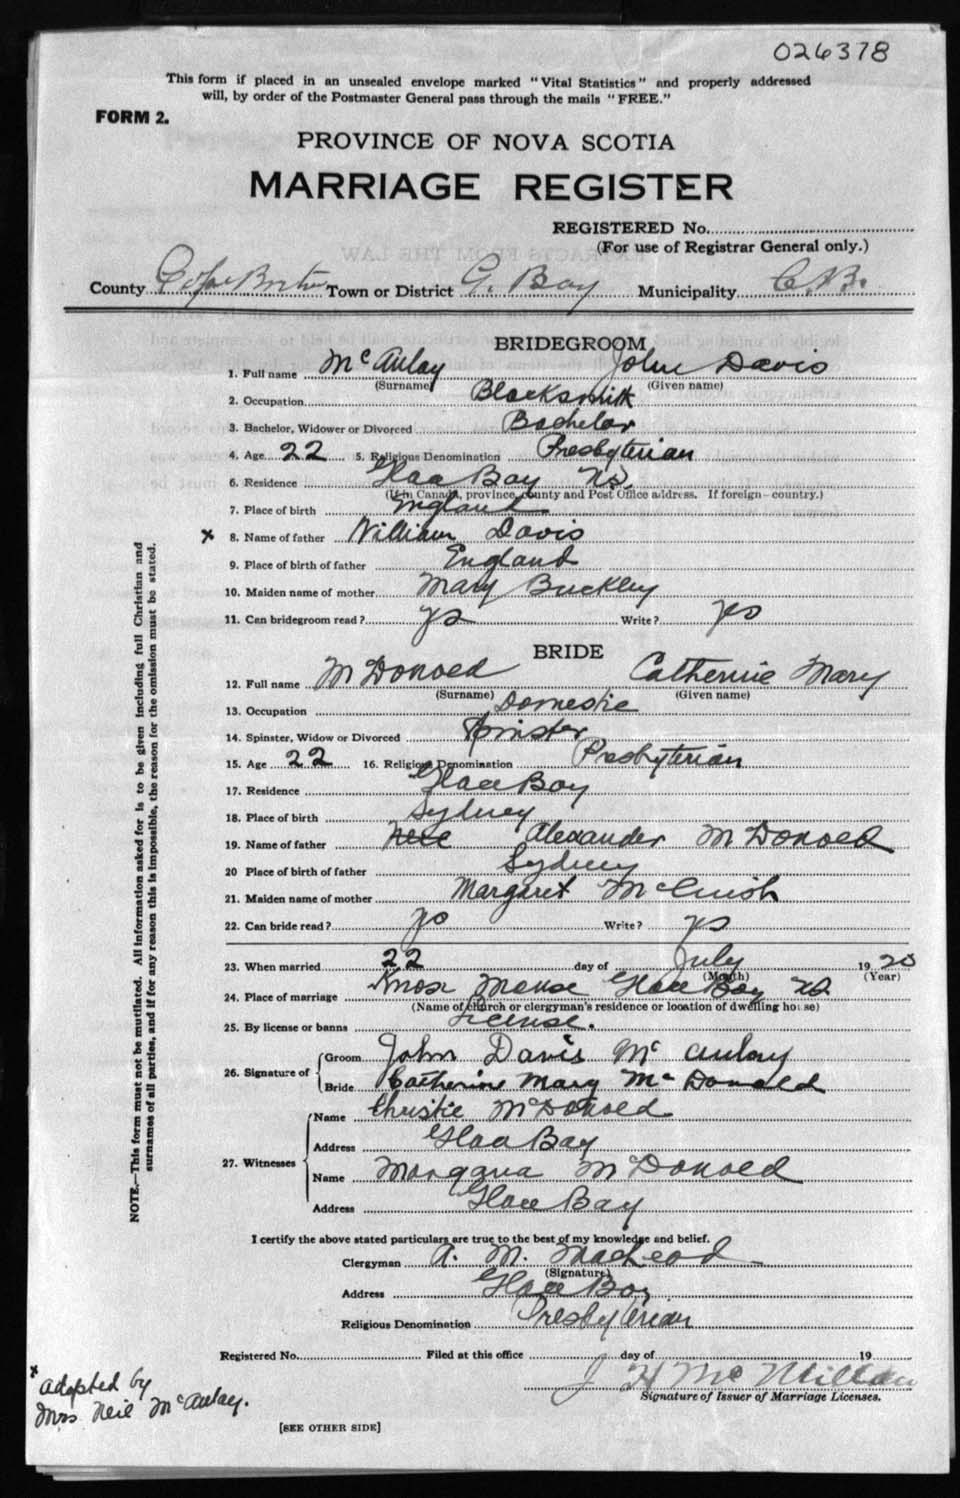 026378
This form if placed in an unsealed envelope marked "Vital Statistics" and properly addressed
will, by order of the Postmaster General pass through the mails "FREE."
FORM 2.
PROVINCE OF NOVA SCOTIA
MARRIAGE REGISTER
REGISTERED No.
(For use of Registrar General only.)
County Cape Breton Town or District G. Bay Municipality C.B.
BRIDEGROOM
1. Full name McAulay John Davis
(Surname) (Given name)
2. Occupation Blacksmith
3. Bachelor, Widower or Divorced Bachelor
4. Age 22 5. Religious Denomination Presbyterian
6. Residence Glace Bay NS.
(If in Canada, province, county and Post Office address. If foreign—country.)
7. Place of birth England
x 8. Name of father William Davis
9. Place of birth of father England
10. Maiden name of mother Mary Buckley
11. Can bridegroom read? yes Write? yes
BRIDE
12. Full name McDonald Catherine Mary
(Surname) (Given name)
13. Occupation Domestic
14. Spinster, Widow or Divorced Spinster
15. Age 22 16. Religious Denomination Presbyterian
17. Residence Glace Bay
18. Place of birth Sydney
19. Name of father Alexander McDonald
20 Place of birth of father Sydney
21. Maiden name of mother Margaret McCuish
22. Can bride read? yes Write? yes
23. When married 22 day of July 1920
(Month) (Year)
24. Place of marriage Knox Manse Glace Bay NS
(Name of church or clergyman's residence or location of dwelling house)
25. By license or banns License.
26. Signature of Groom John Davis McAulay
Bride Catherine Mary McDonald
27. Witnesses Name Christie McDonald
Address Glace Bay
Name McDonald
Address Glace Bay
I certify the above stated particulars are true to the best of my knowledge and belief.
Clergyman A. M. MacLeod
(Signature)
Address Glace Bay
Religious Denomination Presbyterian
Registered No. Filed at this office day of 19
J H McMillan
Signature of Issuer of Marriage Licenses.
[SEE OTHER SIDE]
x adopted by
Mrs. Neil McAulay.
NOTE.—This form must not be mutilated. All information asked for is to be given including full Christian and
surnames of all parties, and if for any reason this is impossible, the reason for the omission must be stated.